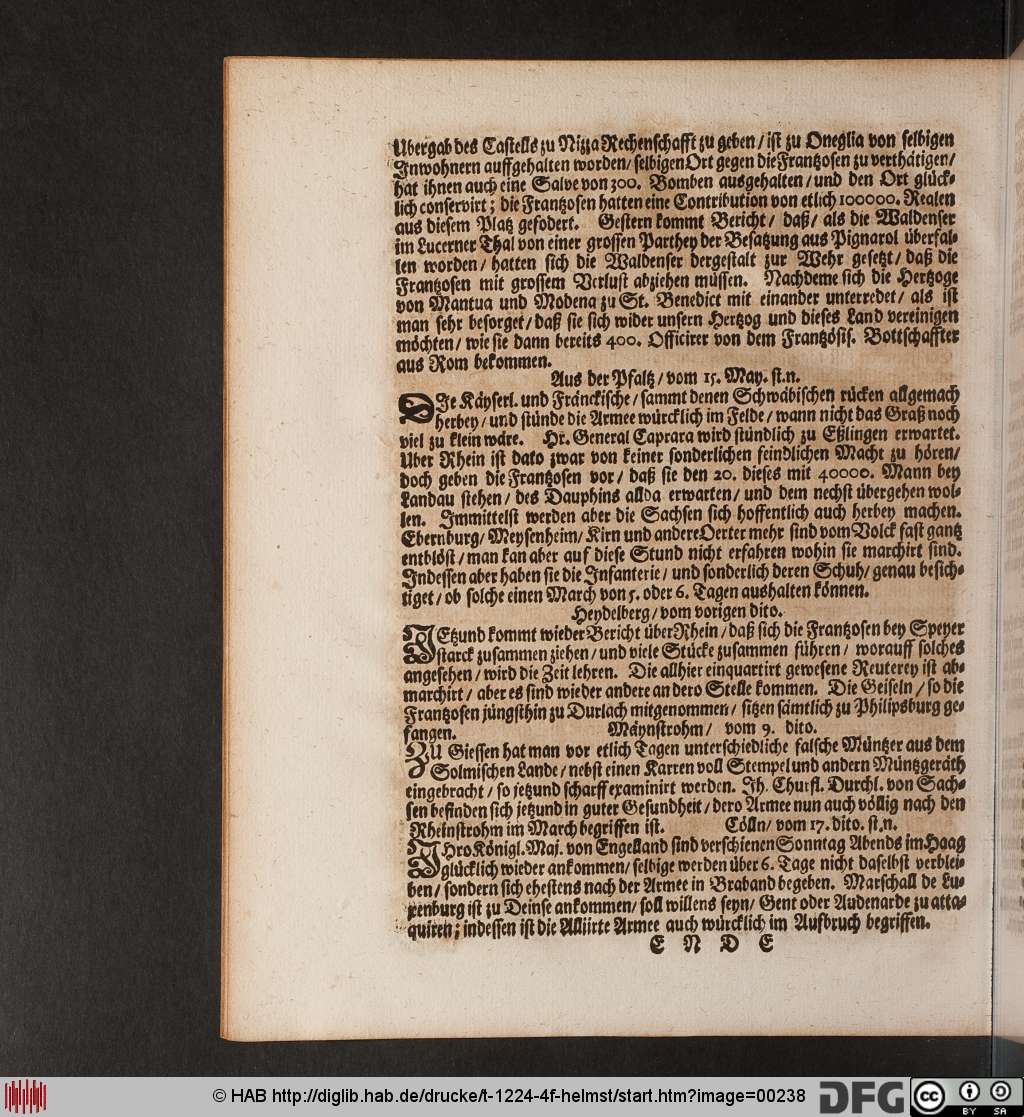 Ubergab des Castells zu Nizza Rechenschafft zu geben / ist zu Oneglia von selbigen
Inwohnern auffgehalten worden / selbigen Ort gegen die Frantzosen zu verthätigen /
hat ihnen auch eine Salve von 300. Bomben ausgehalten / und den Ort glück-
lich conservirt ; die Frantzosen hatten eine Contribution von etlich 100000. Realen
aus diesem Platz gefodert. Gestern kommt Bericht / daß / als die Waldenser
im Lucerner Thal von einer grossen Parthey der Besatzung aus Pignarol überfal-
len worden / hatten sich die Waldenser dergestalt zur Wehr gesetzt / daß die
Frantzosen mit grossem Verlust abziehen müssen. Nachdeme sich die Hertzoge
von Mantua und Modena zu St. Benedict mit einander unterredet / als ist
man sehr besorget / daß sie sich wider unsern Hertzog und dieses Land vereinigen
möchten / wie sie dann bereits 400. Officirer von dem Frantzösis. Bottschaffter
aus Rom bekommen.
Aus der Pfaltz / vom 15. May. st.n.
DIe Käyserl. und Fränckische / sammt denen Schwäbischen rücken allgemach
herbey / und stünde die Armee würcklich im Felde / wann nicht das Graß noch
viel zu klein wäre. Hr. General Caprara wird stündlich zu Eßlingen erwartet.
Uber Rhein ist dato zwar von keiner sonderlichen feindlichen Macht zu hören /
doch geben die Frantzosen vor / daß sie den 20. dieses mit 40000. Mann bey
Landau stehen / des Dauphins allda erwarten / und dem nechst übergehen wol-
len. Immittelst werden aber die Sachsen sich hoffentlich auch herbey machen.
Ebernburg / Meysenheim / Kirn und andere Oerter mehr sind vom Volck fast gantz
entblöst / man kan aber auf diese Stund nicht erfahren wohin sie marchirt sind.
Indessen aber haben sie die Infanterie / und sonderlich deren Schuh / genau besich-
tiget / ob solche einen March von 5. oder 6. Tagen aushalten können.
Heydelberg / vom vorigen dito.
IEtzund kommt wieder Bericht über Rhein / daß sich die Frantzosen bey Speyer
starck zusammen ziehen / und viele Stücke zusammen führen / worauff solches
angesehen / wird die Zeit lehren. Die allhier einquartirt gewesene Reuterey ist ab-
marchirt / aber es sind wieder andere an dero Stelle kommen. Die Geiseln / so die
Frantzosen jüngsthin zu Durlach mitgenommen / sitzen sämtlich zu Philipsburg ge-
fangen. Mäynstrohm / vom 9. dito.
ZU Giessen hat man vor etlich Tagen unterschiedliche falsche Müntzer aus dem
Solmischen Lande / nebst einen Karren voll Stempel und andern Müntzgeräth
eingebracht / so jetzund scharff examinirt werden. Ih. Churfl. Durchl. von Sach-
sen befinden sich jetzund in guter Gesundheit / dero Armee nun auch völlig nach den
Rheinstrohm im March begriffen ist. Cölln / vom 17. dito. st.n.
IHro Königl. Maj. von Engelland sind verschienen Sonntag Abends im Haag
glücklich wieder ankommen / selbige werden über 6. Tage nicht daselbst verblei-
ben / sondern sich ehestens nach der Armee in Braband begeben. Marschall de Lu-
xenburg ist zu Deinse ankommen / soll willens seyn / Gent oder Audenarde zu atta-
quiren ; indessen ist die Alliirte Armee auch würcklich im Aufbruch begriffen.
E N D E
© HAB http://diglib.hab.de/drucke/t-1224-4f-helmst/start.htm?image=00238
DFG
cc
BY SA